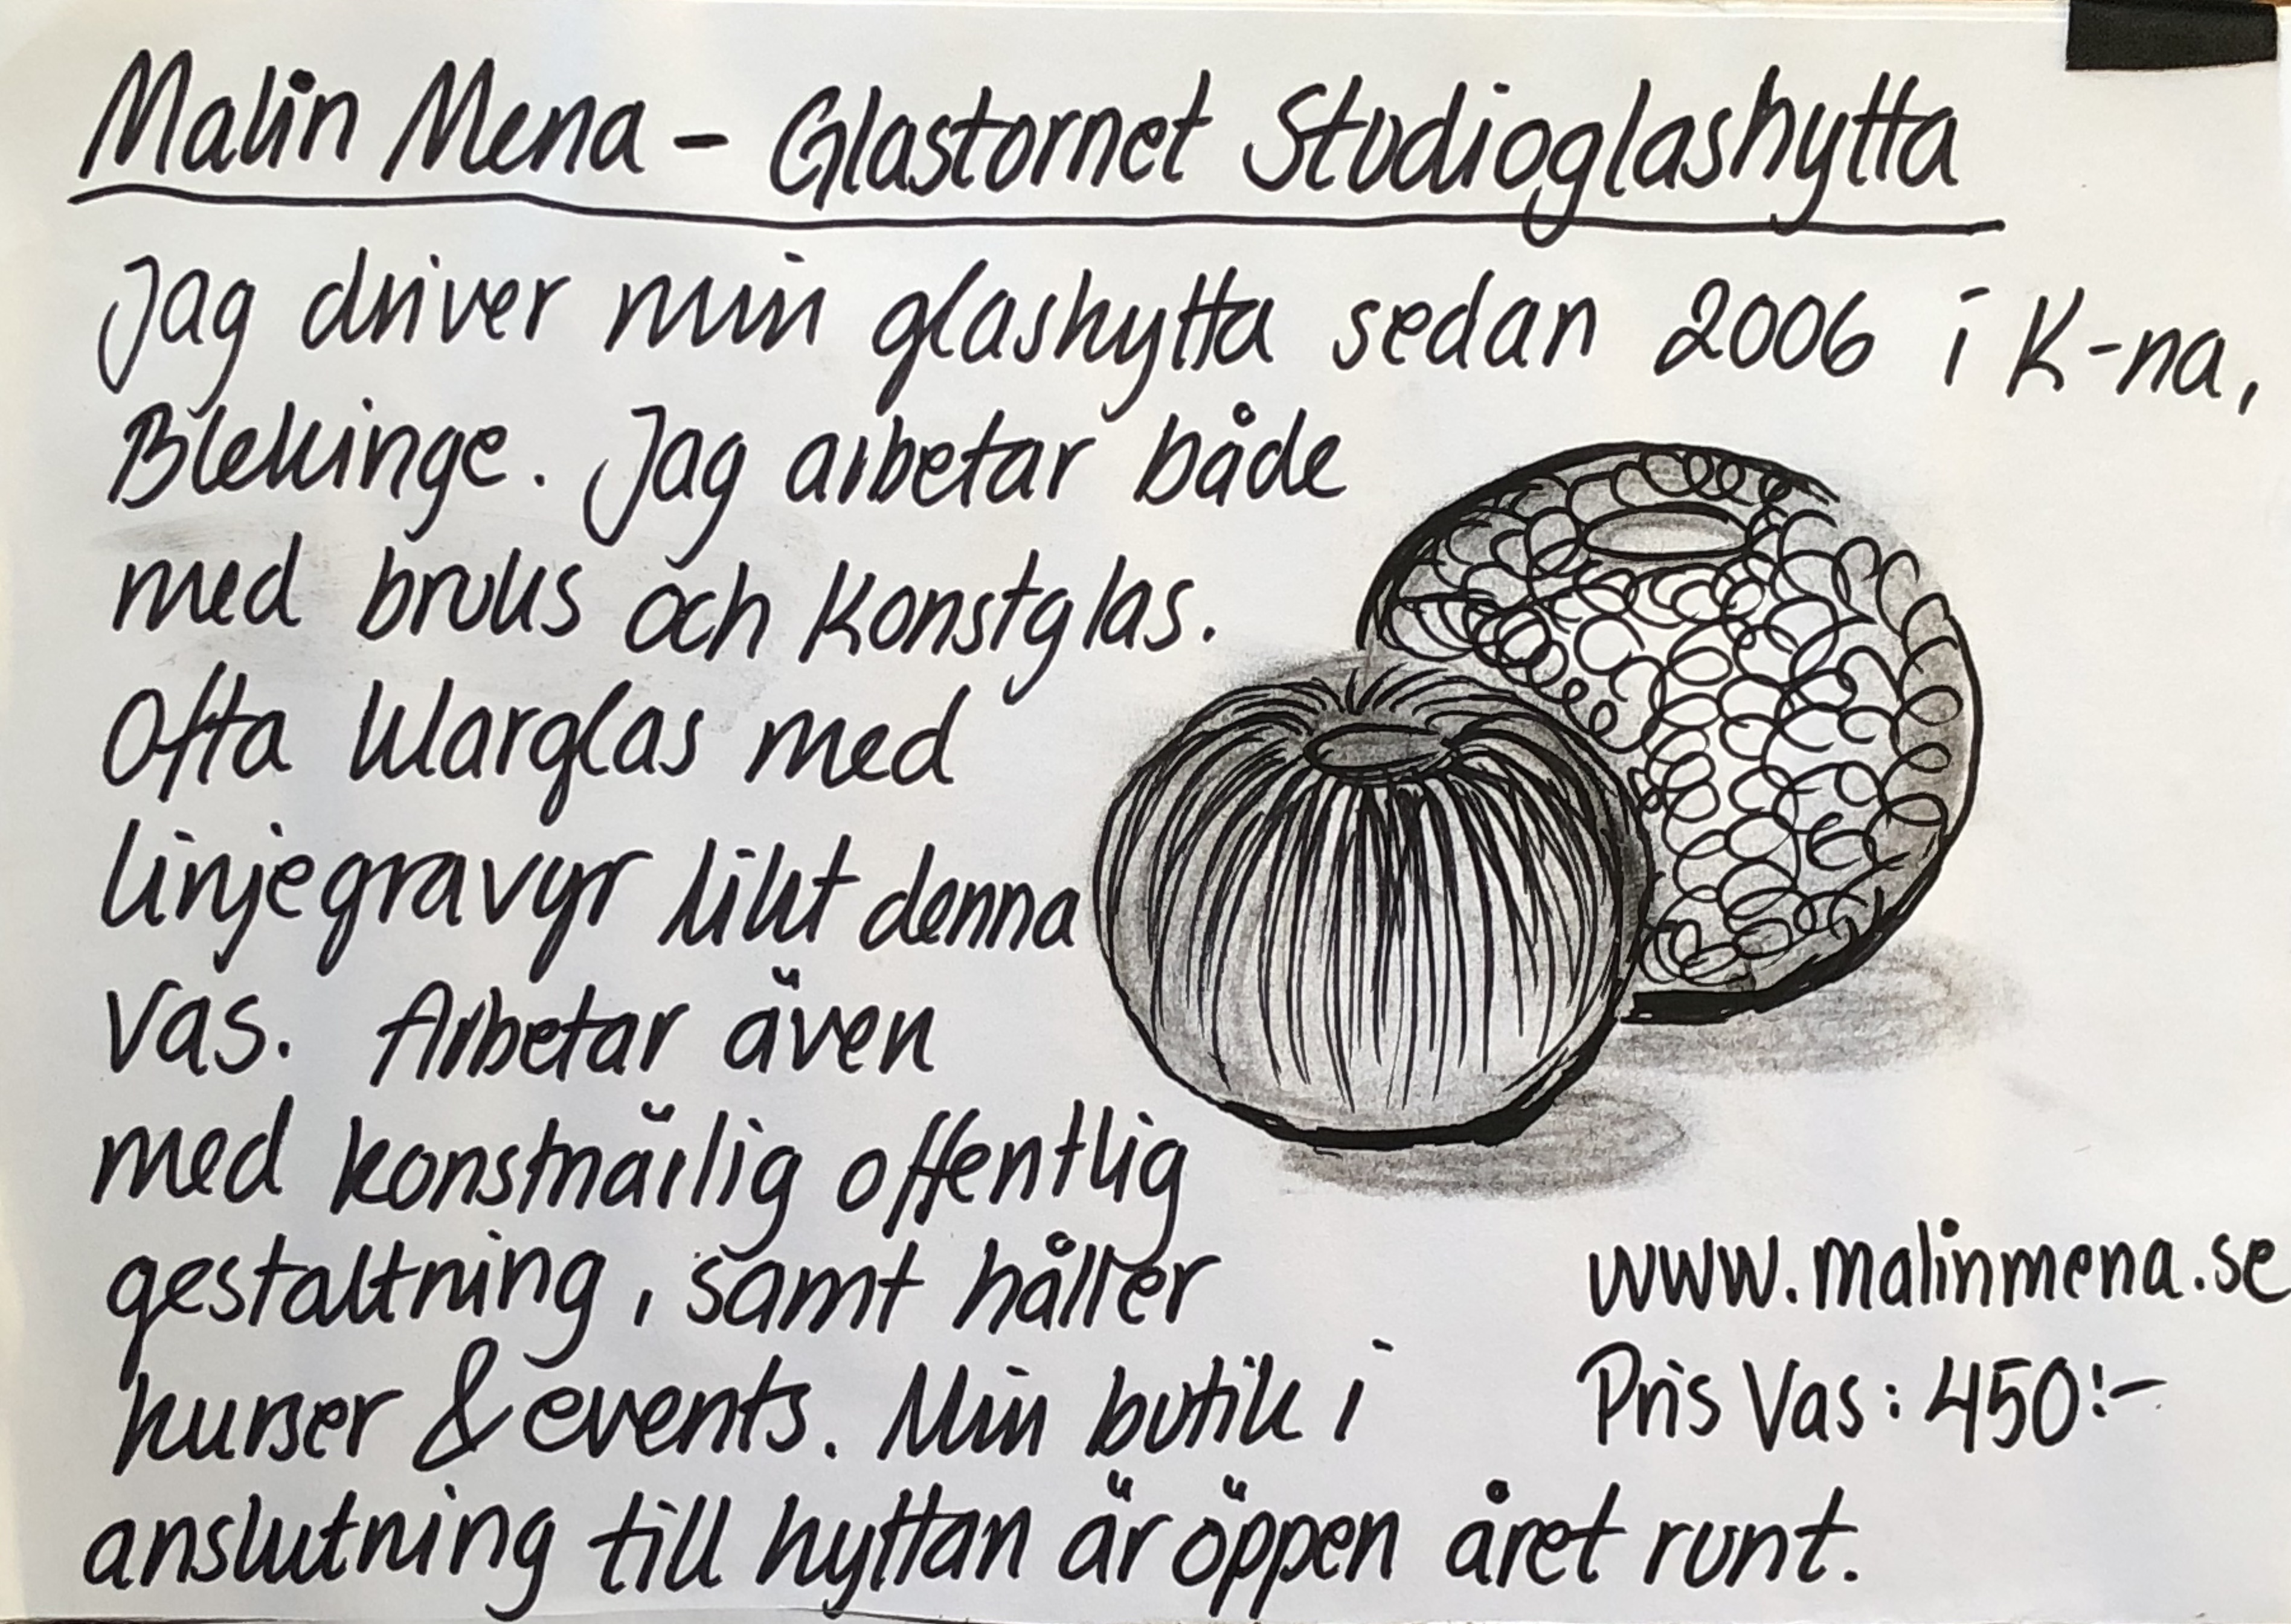 Malin Mena - Glastornet Studioglashytta
Jag driver min glashytta sedan 2006 i K-na,
Blekinge. Jag arbetar både
med bruks och konstglas.
Ofta klarglas med
linjegravyr likt denna
vas. Arbetar även
med konstnärlig offentlig
gestaltning, samt håller
kurser & events. Min butik i
anslutning till hyttan är öppen året runt.
www.malinmena.se
Pris Vas: 450:-